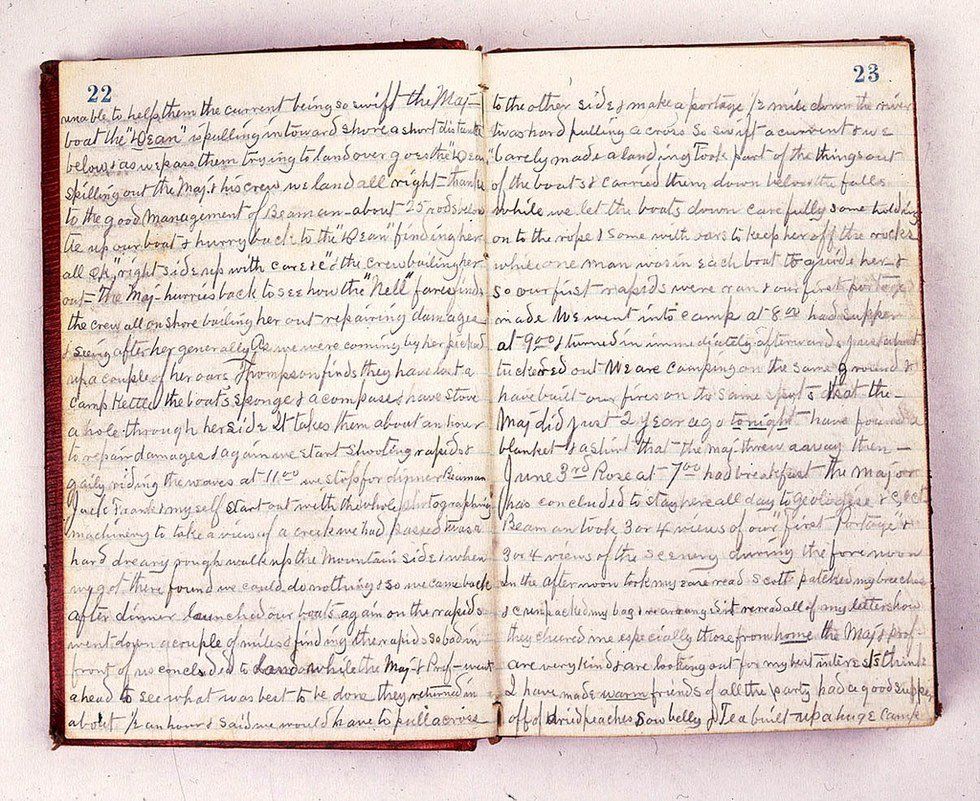 22
unable to help them the current being so swift the Maj-
boat the "Dean" is pulling in toward shore a short distance
below & as we pass them trying to land over goes the "Dean"
spilling out the Maj & his crew we land all right - thanks
to the good management of Beaman - about 25 rods below
tie up our boat & hurry back to the "Dean" finding her
all OK "right side up with care &c" & the crew bailing her
out - The Maj - hurries back to see how the "Nell" fares finds
the crew all on shore bailing her out repairing damages
& seeing after her generally As we were coming by her picked
up a couple of her oars Thompson finds they have lost a
camp kettle the boat's sponge & a compass & have stove
a hole through her side It takes them about an hour
to repair damages & again we start shooting rapids &
gaily riding the waves at 11 00 we stop for dinner Beaman
Jack & myself start out with the whole photographing
machinery to take a view of a creek we had passed twas a
hard dreary rough walk up the Mountain side & when
we got there found we could do nothing & so we came back
after dinner launched our boats again on the rapids
went down a couple of miles & finding the rapids so bad in
front of us concluded to land while the Maj & Prof - went
ahead to see what was best to be done they returned in
about ½ an hour & said we would have to pull across
23
to the other side & make a portage ½ mile down the river
twas hard pulling across so swift a current & we
barely made a landing Took part of the things out
of the boats & carried them down below the falls
while we let the boats down carefully some holding
on to the rope & some with oars to keep her off the rocks
while one man was in each boat to guide her &
so our first rapids were ran & our first portage
made We went into camp at 8 00 had supper
at 9 00 & turned in immediately afterwards just about
tuckered out We are camping on the same ground &
have built our fires on the same spots that the
Maj did just 2 year ago tonight have found a
blanket & a shirt that the maj threw away then -
June 3rd Rose at 7 00 had breakfast the major
has concluded to stay here all day to geologise &
Beaman took 3 or 4 views of our "first Portage" &
3 or 4 views of the scenery during the forenoon
In the afternoon took my ease read Scott patched my breeches
& unpacked my bag & rearranged it reread all of my letters how
they cheered me especially those from home the Maj & Prof -
are very kind & are looking out for my best interests think
I have made warm friends of all the party had a good supper
off of dried peaches sow belly & Tea built up a huge camp